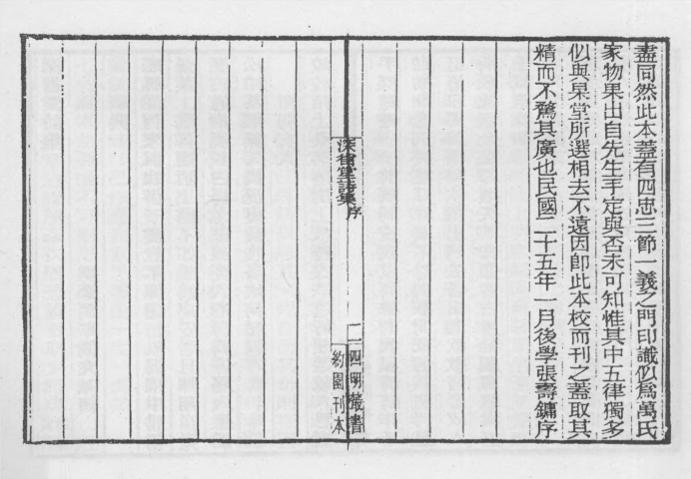 盡同然此本蓋有四忠三節一義之門印識似爲萬氏
家物果出自先生手定與否未可知惟其中五律獨多
似與杲堂所選相去不遠因卽此本校而刊之蓋取其
精而不騖其廣也民國二十五年一月後學張壽鏞序
深省堂詩集 序
二
四明叢書
約園刊本